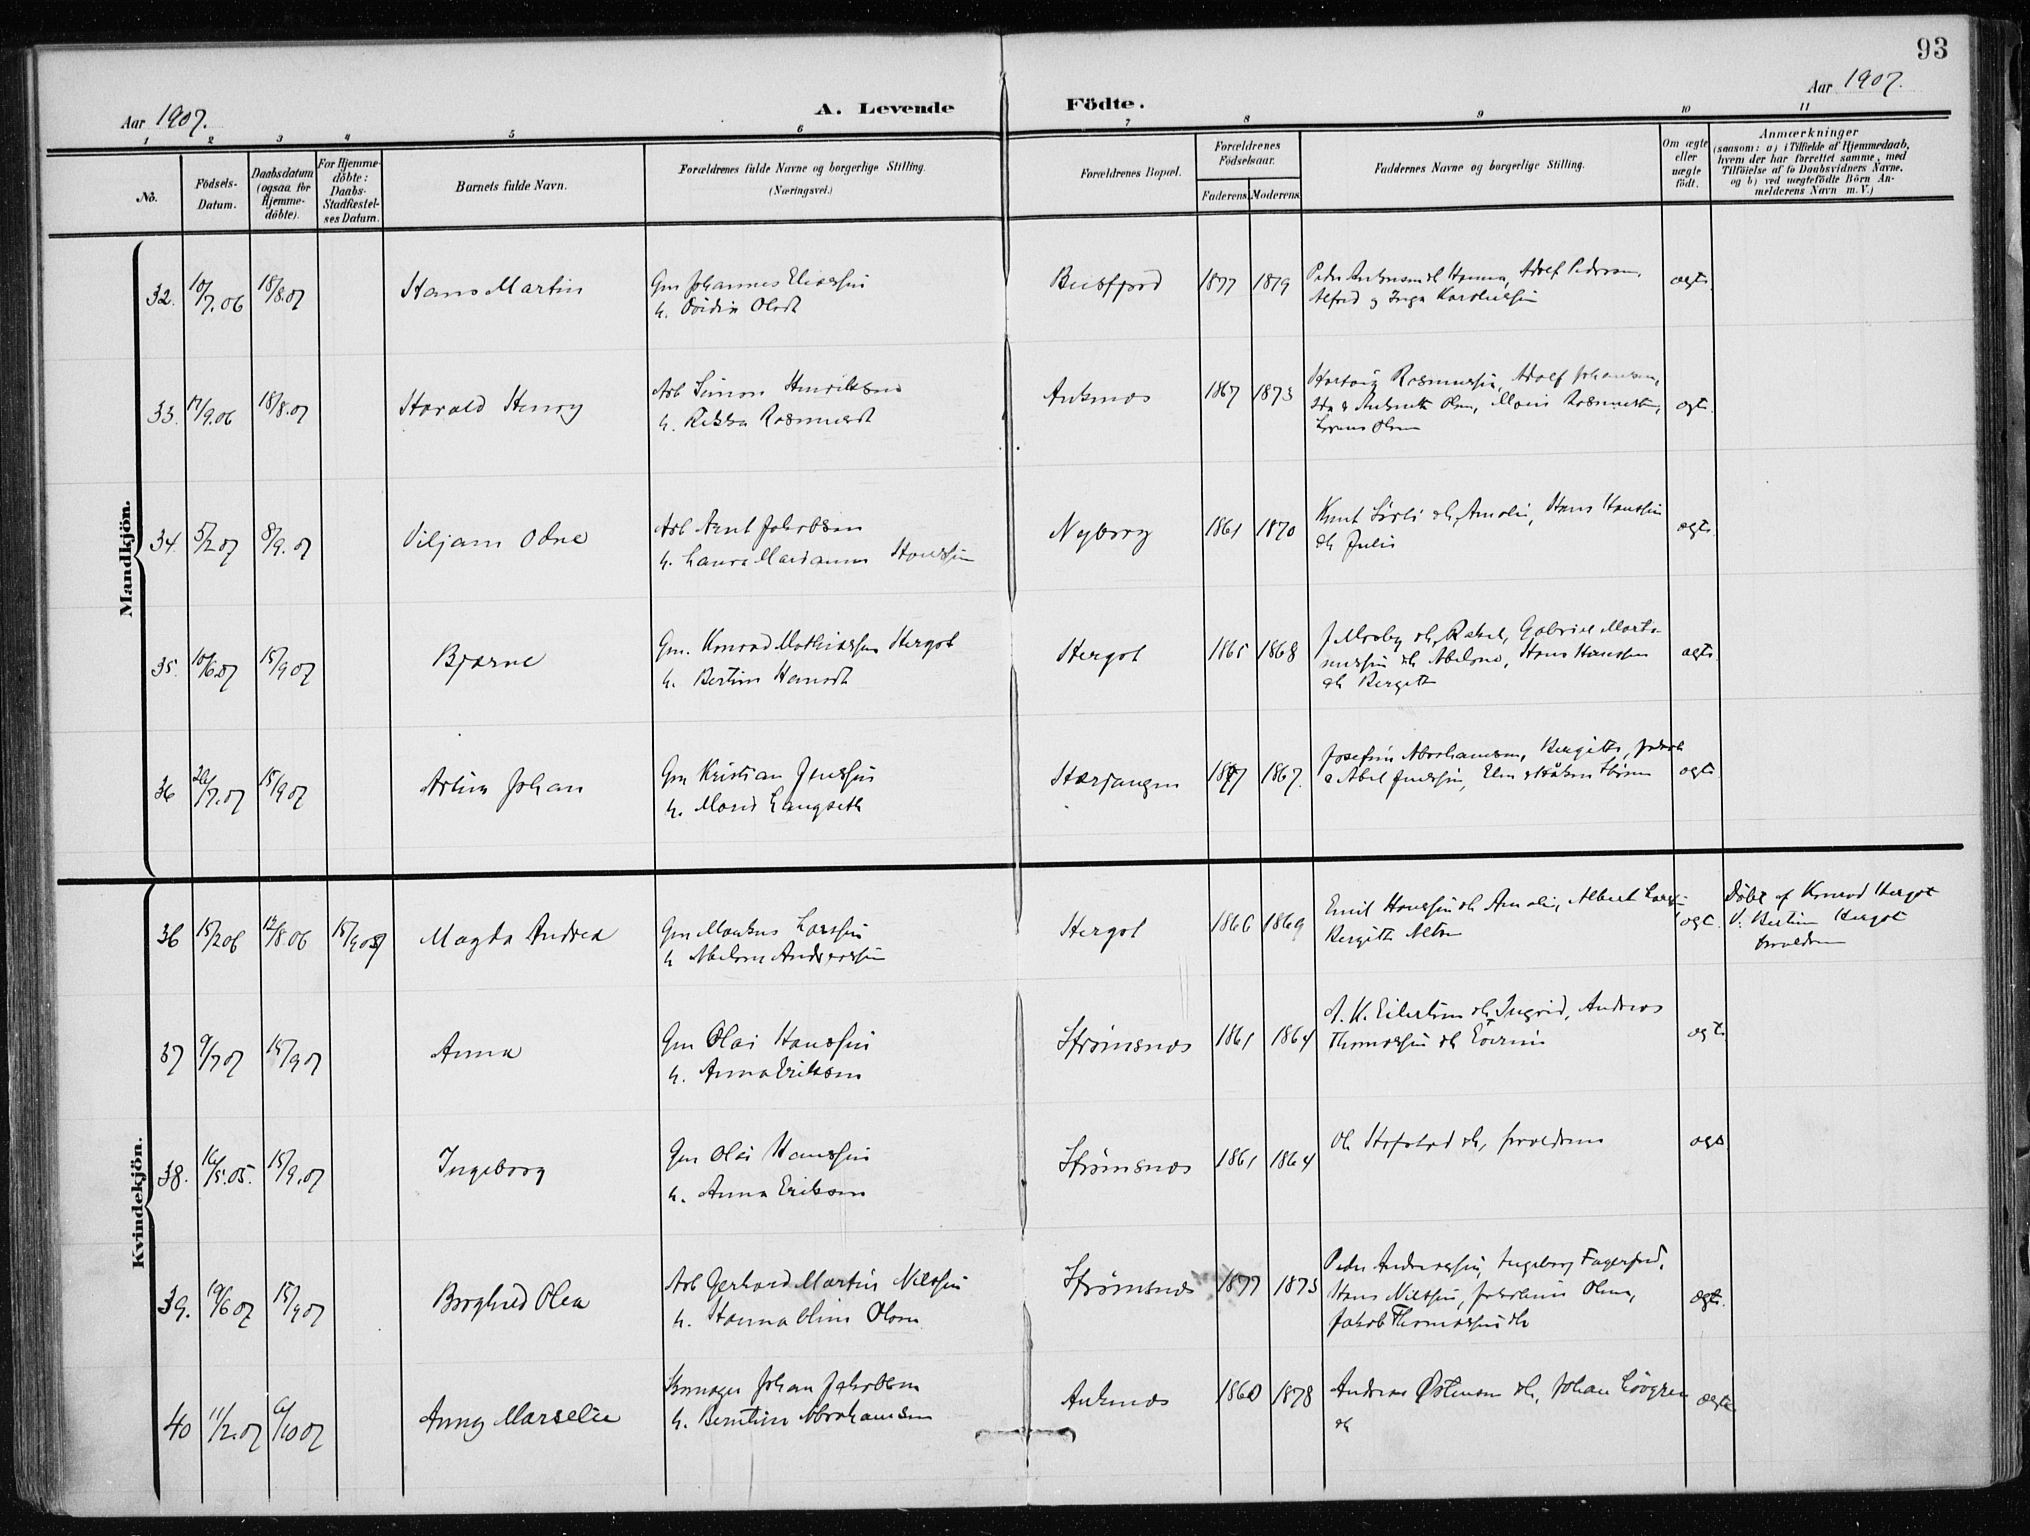 93
Aar 1907.
A. Levende
Födte.
Aar 1907.
1 2 3 4 5 6 7 8 9 10 11
No.
Födsels-
Datum.
Daabsdatum
(ogsaa for
Hjemme-
döbte).
For Hjemme-
döbte:
Daabs-
Stadfæstel-
ses Datum.
Barnets fulde Navn.
Forældrenes fulde Navne og borgerlige Stilling.
(Næringsvei.)
Forældrenes Bopæl.
Forældrenes
Födselsaar.
Faderens. Moderens.
Faddernes Navne og borgerlige Stilling.
Om ægte
eller
uægte
födt.
Anmærkninger
(saasom: a) i Tilfælde af Hjemmedaab,
hvem der har forrettet samme, med
Tilföielse af to Daabsvidners Navne,
og b) ved uægtefödte Börn An-
melderens Navn m. V.)
Mandkjön.
32. 10/7.06 18/8.07 Hans Martin
Gm Johannes Eliassen
h. Olsdt
1877 1879
Hanna, Adolf Pedersen,
Alfred og Inga
ægte
33. 17/9.06 18/8.07 Harald Henry
Arb Simon Henriksen
h. Rasmusdt
Ankenes 1867 1873
Hartvig Rasmussen, Adolf Johansen,
Olsen
ægte
34. 5/2 07 8/9. 07 Viljam Odne
Arb Arnt Jakobsen
h. Laura Marianne Hanssen
Nyborg 1861 1870
Knut dh Amalie, Hans Hanssen
dh Julie
ægte
35. 10/6.07 15/9 07 Bjarne
Gm. Konrad Mathiassen Hergot
h. Bertine Hansdt
Hergot 1865 1868
dh Abelone, Hans Hanssen
dh Bergitte
ægte
36 26/7.07 15/9 07 Artur Johan
Gm Kristian Jenssen
h. Langseth
Herjangen 1867.
Josefine Abrahamsen, Bergitte,
Abel Jenssen,
ægte
Kvindekjön.
36 15/2 06 12/8 06 15/9 07 Magda Andrea
Gm Markus Larssen
h Abelone Andreassen
Hergot 1866 1869
Emil Hanssen dh Amalie, Albert
Bergitte
ægte.
Döbt af Konrad Hergot
V. Bertine Hergot
37 9/7 07 15/9 07 Anna
Gm Olai Hanssen
h. Anna Eriksen
Strømsnes 1861 1864
Ingrid, Andreas
Thomassen dh
ægte
38. 16/5.05. 15/9.07 Ingeborg
Gm Olai Hanssen
h. Anna Eriksen
Strømsnes 1861 1864
dh, forældrene
ægte
39. 19/6 07 15/9 07 Borghild Olea
Arb Gerhard Martin Nilssen
h. Hanna Oline Olsen
Strømsnes 1877 1873
Peder Andreassen, Ingeborg
Hans Nilssen, Olsen,
Jakob Thomassen dh
ægte.
40 11/2.07 6/10 07 Anny Marselie
Johan Jakobsen
h. Berntine Abrahamsen
Ankenes 1860 1878
Andreas dh, Johan Lövgren
dh
ægte